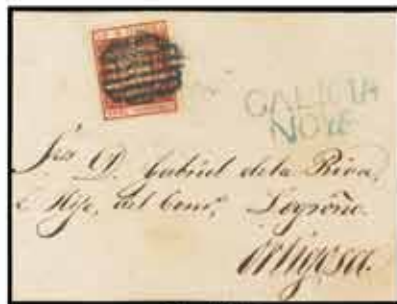 GALICIA
NOYA
Sres D. Gabriel de la Riva,
é Hijo, del Comº, Logroño.
Ortigosa.